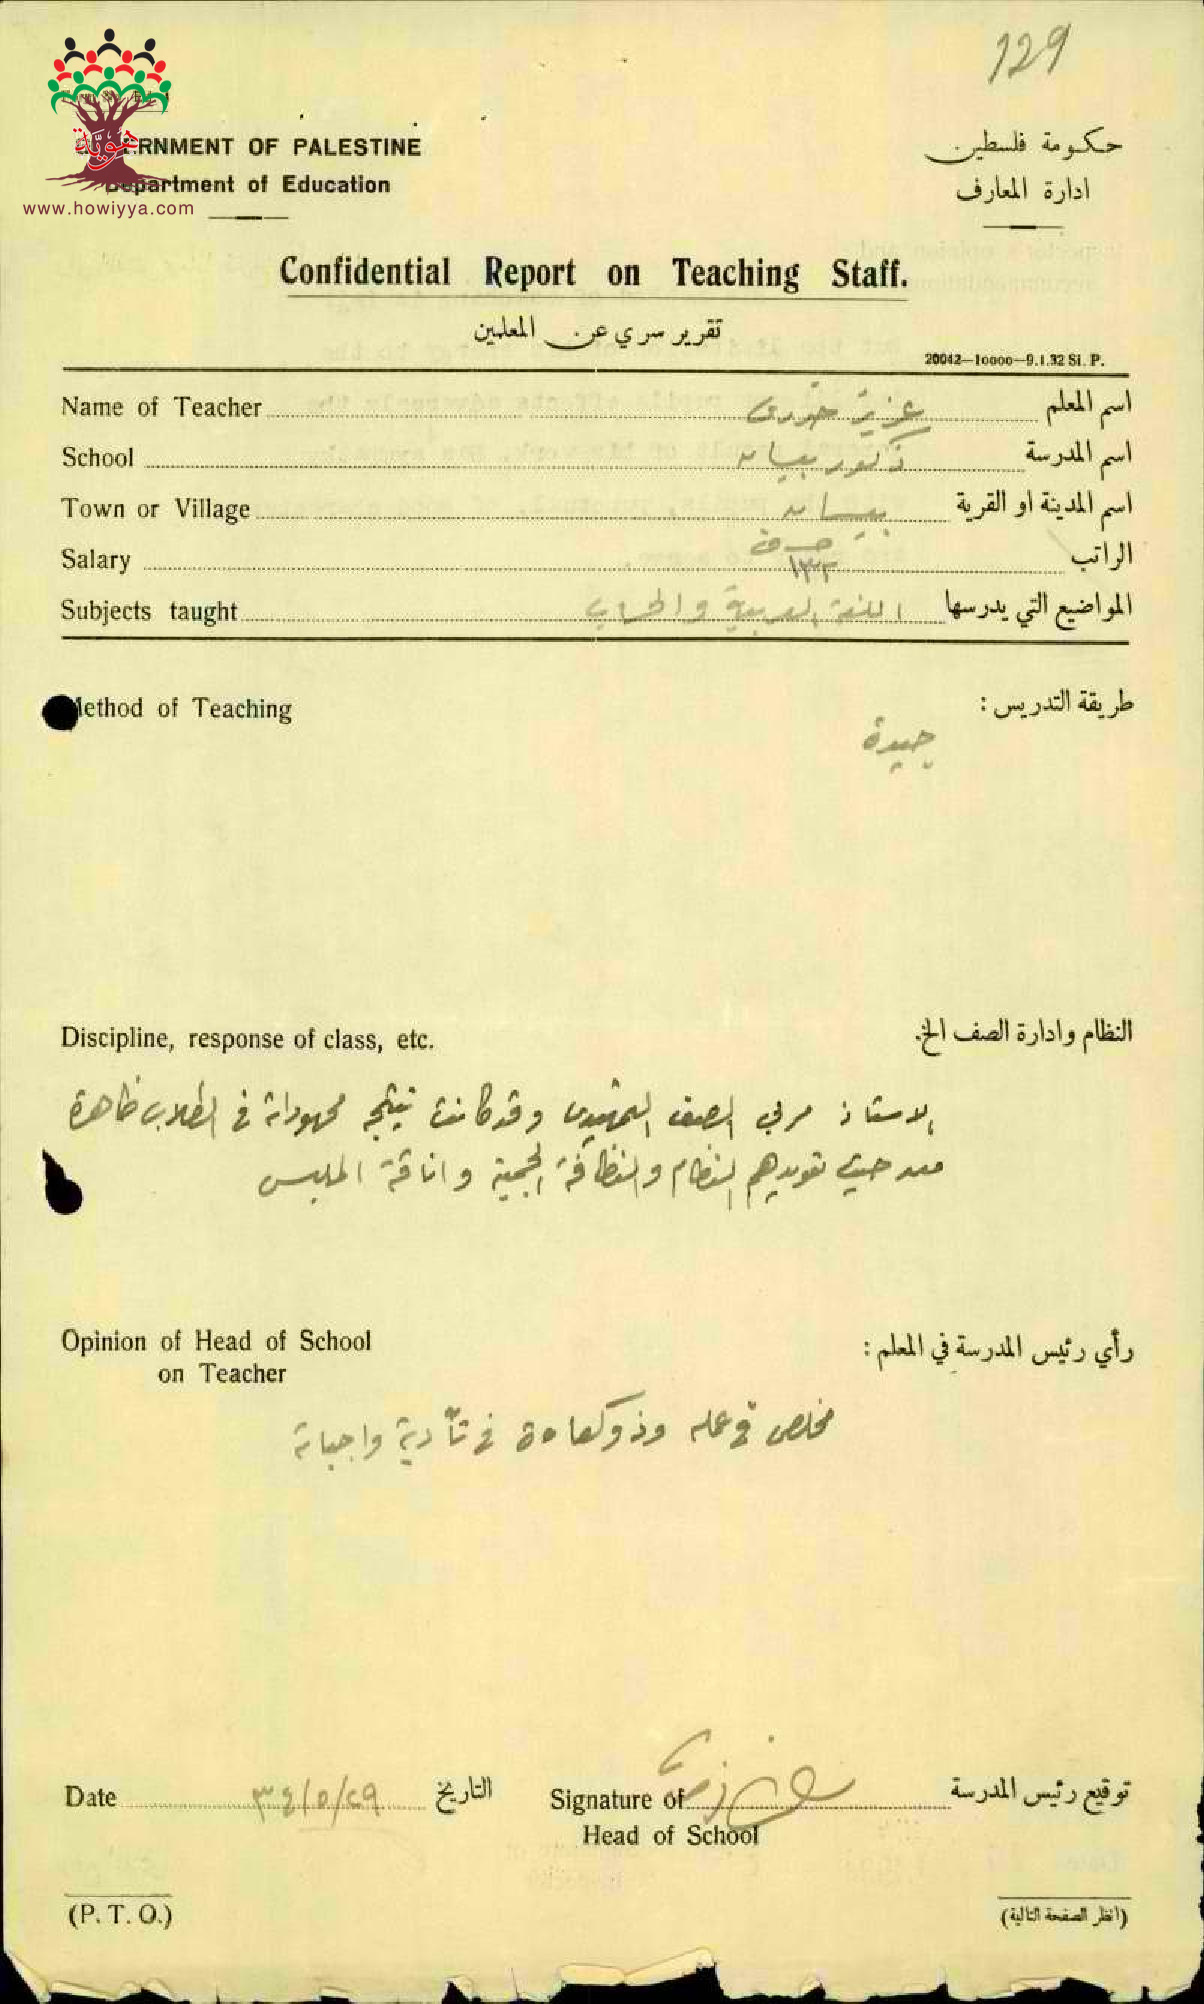 129
هويّة
www.howiyya.com
GOVERNMENT OF PALESTINE
حكومة فلسطين
Department of Education
ادارة المعارف
Confidential Report on Teaching Staff.
تقرير سري عن المعلمين
20042—10000—9.1.32 Si. P.
Name of Teacher عزيز خوري اسم المعلم
School ذكور بيسان اسم المدرسة
Town or Village بيسان اسم المدينة او القرية
Salary الراتب
Subjects taught اللغة العربية والحساب المواضيع التي يدرسها
Method of Teaching
طريقة التدريس :
جيدة
Discipline, response of class, etc.
النظام وادارة الصف الخ.
الاستاذ مربي الصف التمهيدي وقد كانت نتيجة مجهوداته في الطلاب ظاهرة
من حيث تعويدهم النظام والنظافة الجسمية واناقة الملبس
Opinion of Head of School
on Teacher
رأي رئيس المدرسة في المعلم :
مخلص في عمله وذو كفاءة في تأدية واجباته
Date ٢٩/٥/٣٤ التاريخ
Signature of
Head of School
توقيع رئيس المدرسة
(P. T. O.)
(انظر الصفحة التالية)